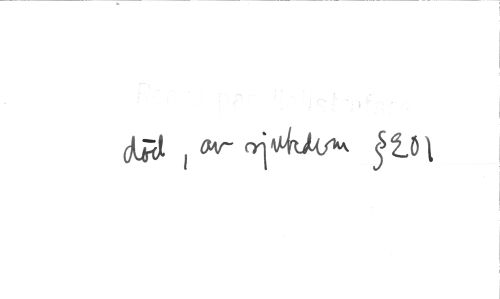 död, av sjukdom §201